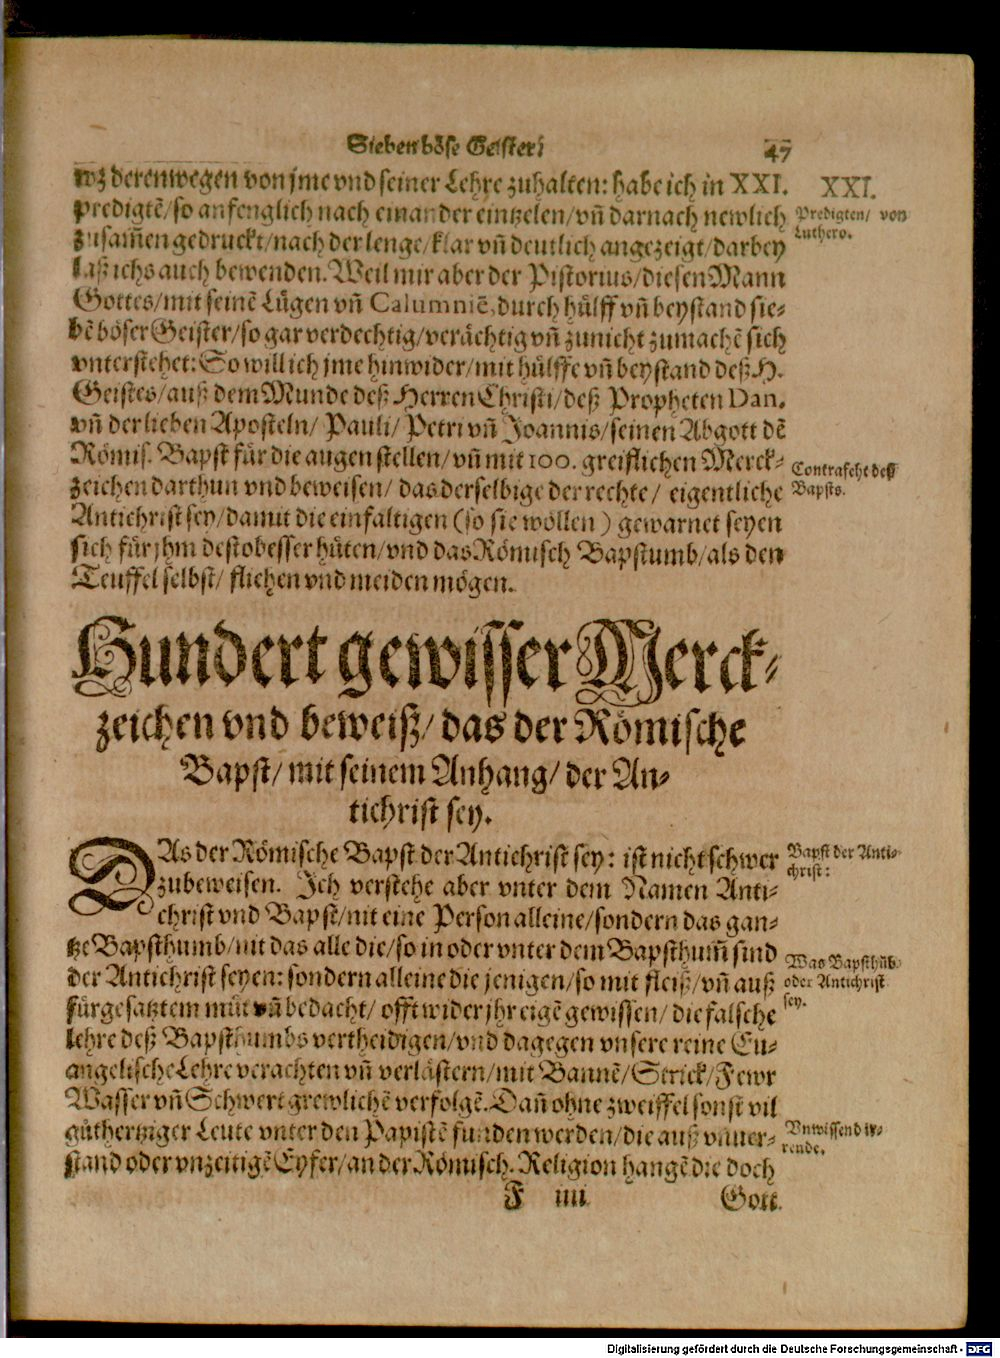 Sieben böse Geister. 47
wz derenwegen von jme vnd seiner Lehre zuhalten: habe ich in XXI.
XXI.
predigtē/ so anfenglich nach einander eintzelen/ vn̄ darnach newlich
Predigten/ von
Luthero.
zusam̄en gedruckt/ nach der lenge/ klar vn̄ deutlich angezeigt/ darbey
laß ichs auch bewenden. Weil mir aber der Pistorius/ diesen Mann
Gottes/ mit seinē Lügen vn̄ Calumniē, durch hülff vn̄ beystand sie-
bē böser Geister/ so gar verdechtig/ verächtig vn̄ zunicht zumachē sich
vnterstehet: So will ich jme hinwider/ mit hülffe vn̄ beystand deß H.
Geistes/ auß dem Munde deß Herren Christi/ deß Propheten Dan.
vn̄ der lieben Aposteln/ Pauli/ Petri vn̄ Joannis/ seinen Abgott dē
Römis. Bapst für die augen stellen/ vn̄ mit 100. greiflichen Merck-
Contrafeht deß
Bapsts.
zeichen darthun vnd beweisen/ das derselbige der rechte/ eigentliche
Antichrist sey/ damit die einfältigen (so sie wöllen) gewarnet seyen
sich für jhm desto besser hüten/ vnd das Römisch Bapstumb/ als den
Teuffel selbst/ fliehen vnd meiden mögen.
Hundert gewisser Merck-
zeichen vnd beweiß/ das der Römische
Bapst/ mit seinem Anhang/ der An-
tichrist sey.
DAs der Römische Bapst der Antichrist sey: ist nicht schwer
Bapst der Anti-
christ:
zubeweisen. Ich verstehe aber vnter dem Namen Anti-
christ vnd Bapst/ nit eine Person alleine/ sondern das gan-
tze Bapsthumb/ nit das alle die/ so in oder vnter dem Bapsthum̄ sind
Was Bapsthūb
oder Antichrist
sey.
der Antichrist seyen: sondern alleine die jenigen/ so mit fleiß/ vn̄ auß
fürgesatztem müt vn̄ bedacht/ offt wider jhr eigē gewissen/ die falsche
lehre deß Bapsthumbs vertheidigen/ vnd dagegen vnsere reine Eu-
angelische Lehre verachten vn̄ verlästern/ mit Bannē/ Strick/ Fewr
Wasser vn̄ Schwert grewlichē verfolgē. Dan̄ ohne zweiffel sonst vil
gütherziger Leute vnter den Papistē funden werden/ die auß vnuer-
Vnwissend ir-
rende.
stand oder vnzeitigē Eyfer/ an der Römisch. Religion hangē die doch
F iiii Gott
Digitalisierung gefördert durch die Deutsche Forschungsgemeinschaft - DFG